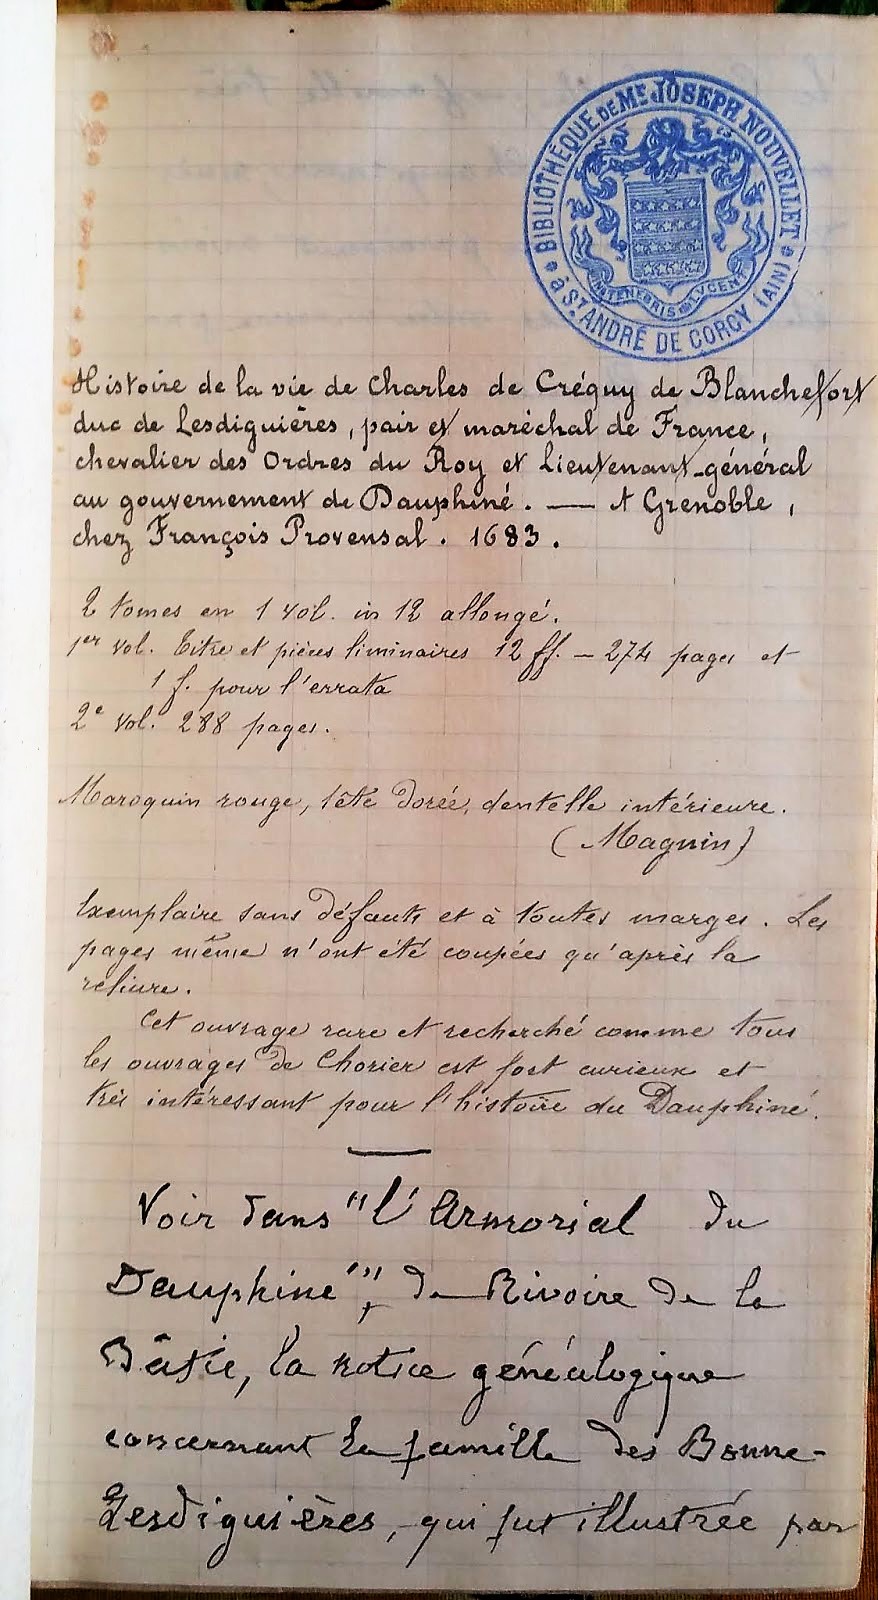 BIBLIOTHÈQUE DE ME JOSEPH NOUVELLET
à ST ANDRÉ DE CORCY (AIN)
IN TENEBRIS LVCENT
Histoire de la vie de Charles de Créquy de Blanchefort
duc de Lesdiguières, pair et maréchal de France,
chevalier des Ordres du Roy et Lieutenant-général
au gouvernement de Dauphiné. — A Grenoble,
chez François Provensal. 1683.
2 tomes en 1 vol. in 12 allongé.
1er vol. Titre et pièces liminaires 12 ff. — 274 pages et
1 f. pour l'errata
2e vol. 288 pages.
Maroquin rouge, tête dorée, dentelle intérieure.
(Magnin)
Exemplaire sans défauts et à toutes marges. Les
pages même n'ont été coupées qu'après la
reliure.
Cet ouvrage rare et recherché comme tous
les ouvrages de Chorier est fort curieux et
très intéressant pour l'histoire du Dauphiné.
Voir dans "l'Armorial du
Dauphiné", de Rivoire de la
Bâtie, la notice généalogique
concernant la famille des Bonne-
Lesdiguières, qui fut illustrée par